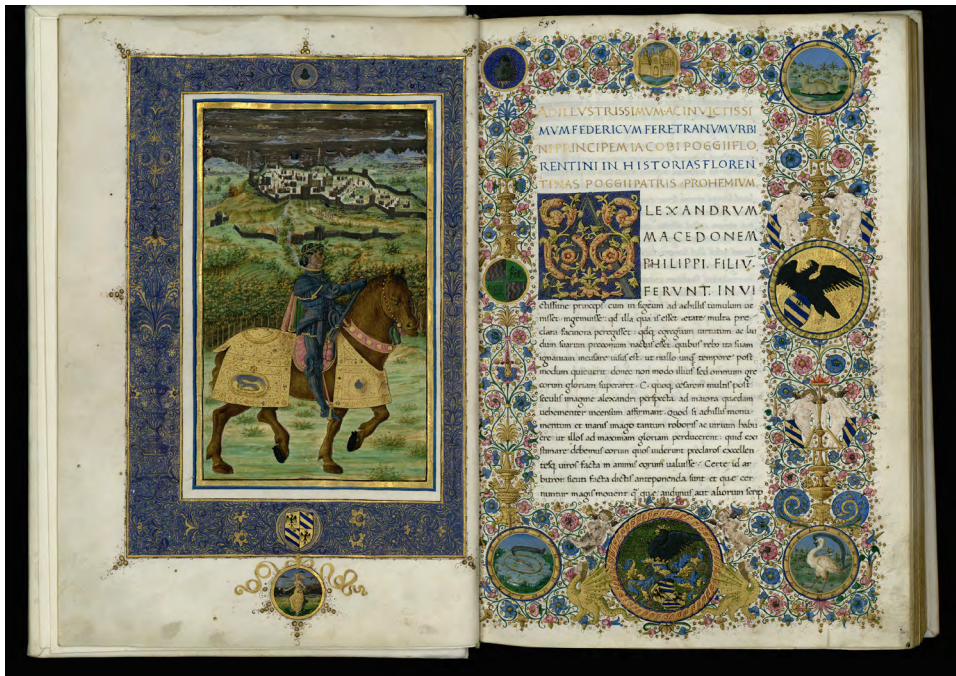 AD ILLVSTRISSIMVM AC INVICTISSI
MVM FEDERICVM FERETRANVM VRBI
NI PRINCIPEM IACOBI POGGII FLO
RENTINI IN HISTORIAS FLOREN
TINAS POGGII PATRIS PROHEMIVM
ALEXANDRVM
MACEDONEM
PHILIPPI. FILIV
FERVNT. INVI
ctissime princeps cum in sigeum ad achillis tumulum ue
nisset ingemuisse: qd illa qua is esset aetate multa pre
clara facinora peregisset:
ignauiam incusare uisus est: ut nullo unq tempore post
modum quieuerit donec non modo illius sed omnium gre
corum gloriam superaret. C. quoq cesarem multis post
seculis imagine alexandri perspecta ad maiora quedam
uehementer incensum affirmant. Quod si achillis monu
mentum et inanis imago tantum roboris ac uirium habu
ere ut illos ad maximam gloriam perducerent: quid exi
stimare debemus eorum quos uiderunt preclaros excellen
tesq uiros facta in animis eorum ualuisse. Certe id ar
bitror sicuti facta dictis anteponenda sunt et que cer
nuntur magis mouent q que audimus aut aliorum scrip